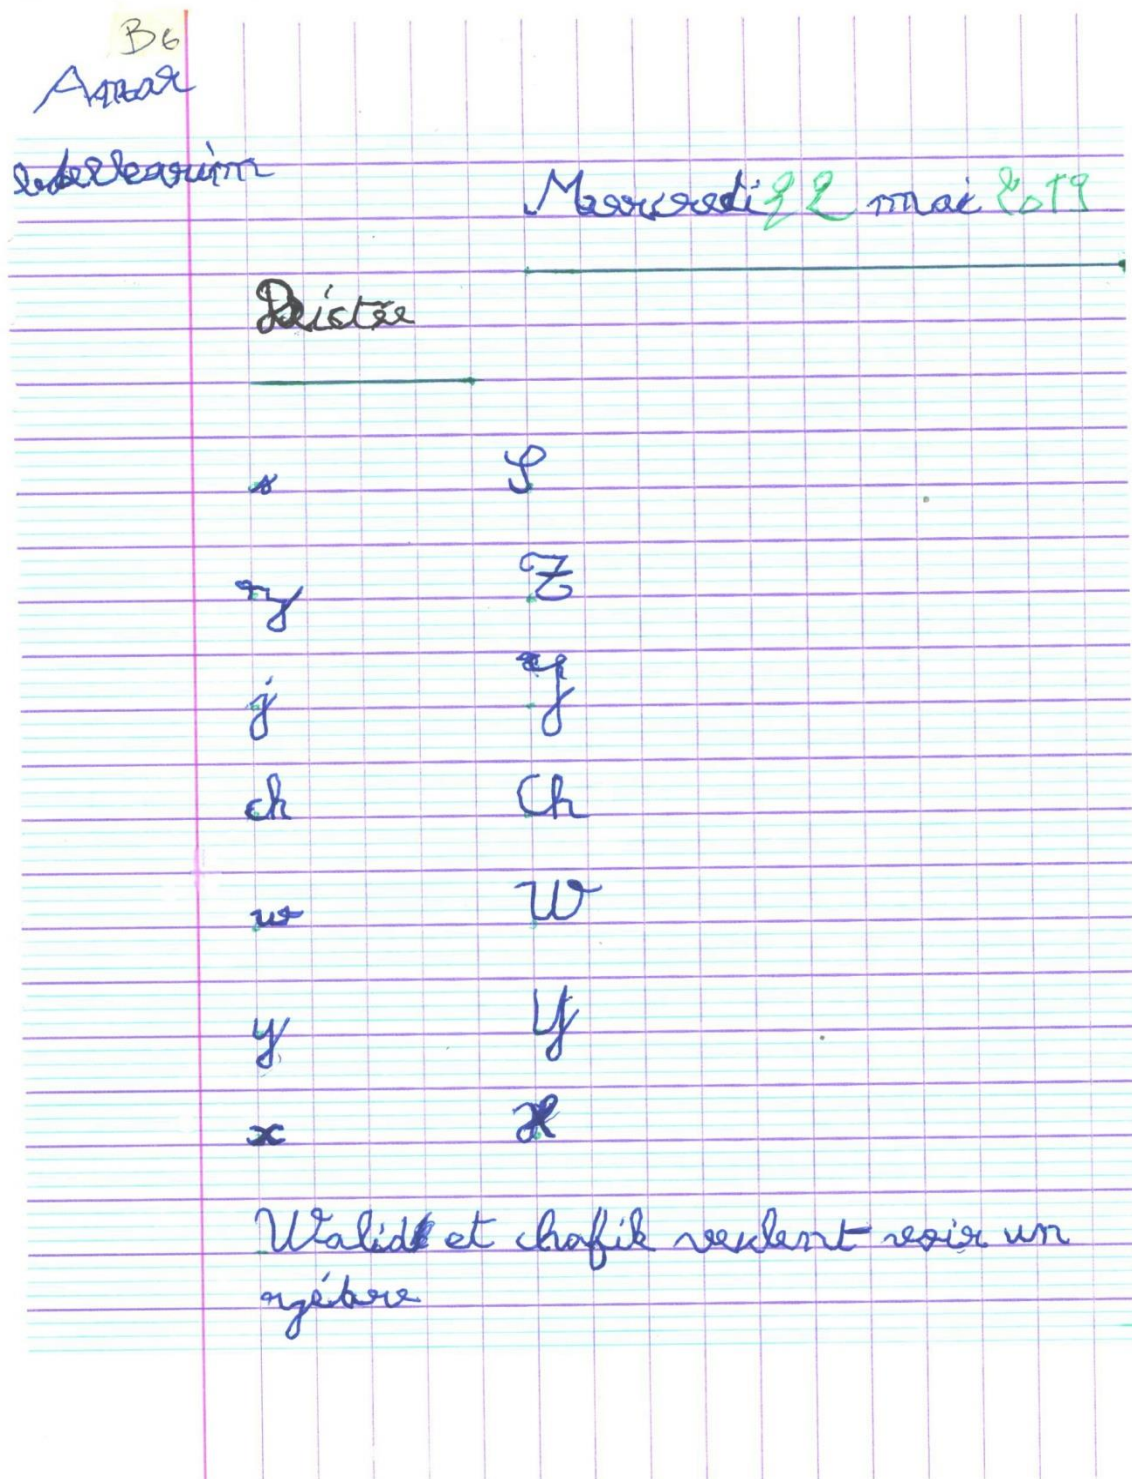 B6
Amar
abdelkarim
Mercredi 22 mai 2019
Dictée
s S
z Z
j J
ch Ch
w W
y Y
x X
Walid et chafik veulent voir un
zébre